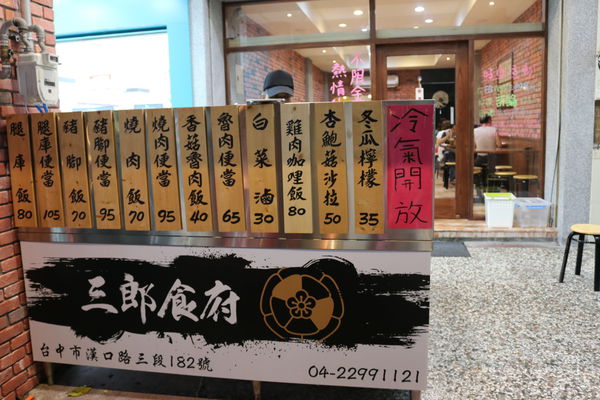 腿庫飯 80
腿庫便當 105
豬腳飯 70
豬腳便當 95
燒肉飯 70
燒肉便當 95
香菇魯肉飯 40
魯肉便當 65
白菜滷 30
雞肉咖哩飯 80
杏鮑菇沙拉 50
冬瓜檸檬 35
冷氣開放
三郎食府
台中市漢口路三段182號
04-22991121